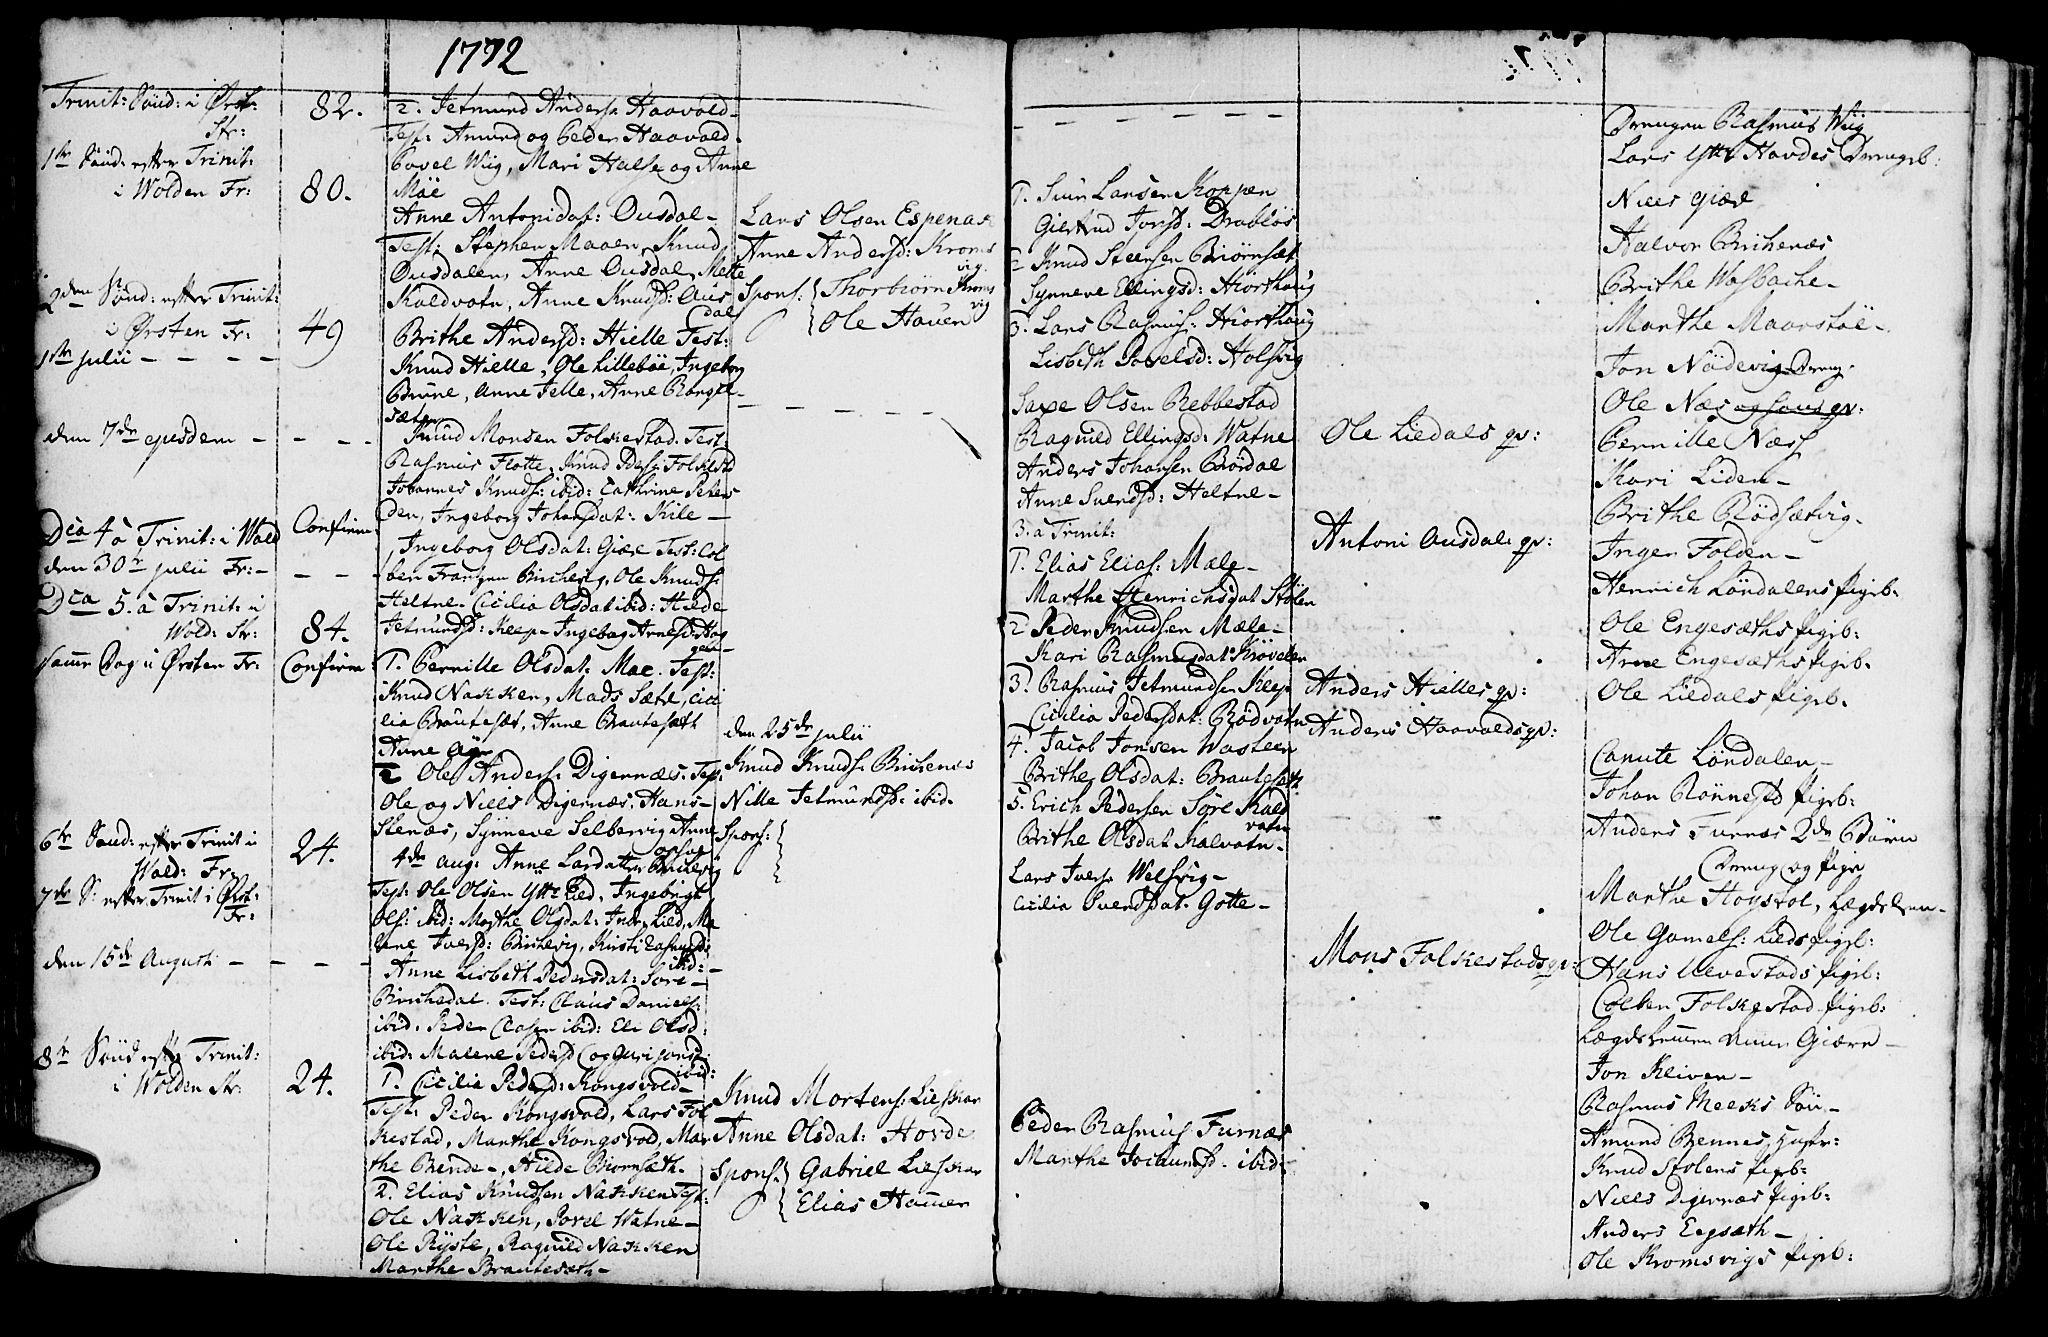 1772
Trinit: Sönd: i Ørst:
Str:
1ste Sönd: efter Trinit:
i Wolden Fr:
2den Sönd: efter Trinit:
i Ørsten Fr:
1ste julii - - - -
den 7de ejusdem - - - -
Dca 4 à Trinit: i Wold
den 30te julii Fr: -
Dca 5. à Trinit: i
Wold: Str:
samme Dag i Ørsten Fr:
6te Sönd: efter Trinit i
Wold: Fr:
7de S: efter Trinit i Ørst:
Fr:
den 15de August: - - - -
8de Sönd efter Trinit:
i Wolden Str:
82.
80.
49
Confirm
84.
Confirm:
24.
24.
2. Jetmund Anders: Haavold-
Test: Amund og Peder Haavold-
Povel Wiig, Mari Halse og Anne
Möe
Anne Antonidat: Ousdal-
Test: Stephen Maaen, Knud
Ousdalen, Anne Ousdal, Mette
Kaldvatn, Anne Knudsd: Aus
dal
Brithe Andersd: Hielle Test:
Knud Hielle, Ole Lilleböe, Ingeborg
Brune, Anne Jelle, Anne
sæter
Knud Monsen Folkestad. Test:
Rasmus Flotte, Knud Folkestd
Johannes Knuds: ibid: Cathrine
Ingeborg Johansdat: Kile-
Ingeborg Olsdat: Giæe Test: Col
ben Birchevig, Ole Knuds:
Heltne. Cicilia Olsdat ibid: Hilde
Jetmundsd: Keep- Ingebog Arnesd: Hog
1. Pernille Olsdat: Moe. Test:
Knud Nakken, Mads Sætre, Cici
lia Brautesæt, Anne Brautesæth
Anne
2 Ole Anders: Digernæs. Test:
Ole og Niels Digernæs, Hans
Stenæs, Synneve Selbervig Anne
4de Aug: Anne Larsdatter Birchevig
Test: Ole Olsen Ytte Lied, Ingebrigt
Ols: ibid: Marthe Olsdat: Indre Lied, Ma
Iversd: Birchevig, Kirsti Rasmusd:
ibid:-
Anne Lisbeth Pedersdat: Söre-
Birchedal. Test: Claus Daniels:
ibid. Peder Clasen ibid: Eli Olsd:
ibid: Malene Pedersd og Guri Jonsd:
ibid:
1. Cicilia Pedersd: Kongsvold-
Test: Peder Kongsvold, Lars Fol
kestad, Marthe Kongsvold, Mar
the Bende-, Hilde Biörnsæth-
2. Elias Knudsen Nakken Test:
Ole Nakken, Povel Watne-
Ole Ryste, Ragnild Nakken
Marthe Brautesæth-
Lars Olsen Espenas
Anne Andersd: Kroms
vig.
Spons: Thorbiörn Kroms
vig
Ole Hauen
- - - - -
den 25de julii
Knud Knuds: Birchenes
Nille Jetmundsd: ibid.
Spons:
Knud Mortens: Liesker
Anne Olsdat: Horde
Spons: Gabriel Liesker
Elias Hauen
- - - - - -
1. Siur Larsen Koppen
Giertrud Jonsd: Drablös
2 Knud Steensen Biörnsæt
Synneve Ellingsd: Hiorthaug
3. Lars Rasmus: Hiorthaug
Lisbeth Povelsd: Holsvig
Saxe Olsen Rebbestad
Ragnild Ellingsd: Watne
Anders Johansen Bördal
Anne Svendsd: Heltne-
3. à Trinit:
1. Elias Elias: Mæle-
Marthe Henrichsdat Stölen
2 Peder Knudsen Mæle-
Kari Rasmusdat: Kövelen
3. Rasmus Jetmundsen Keep
Cicilia Pedersdat: Rödvatn
4. Jacob Jonsen Wasteen
Brithe Olsdat: Brautesæth
5. Erich Pedersen Söre Kald
vatn
Brithe Olsdat Kalvatn-
Lars Ivers: Welsvig-
Cicilia Svendsdat. Gotte-
Peder Rasmus: Furnæs
Marthe ibid:
Ole Liedals qv:
Antoni Ausdals qv:
Anders Hielles qv:
Anders Haavolds qv:
Mons Folkestads qv:
Drengen Rasmus Wiig
Lars Ytte Havdes Drengb:
Niels Giæe
Halvor Birchenæs
Brithe Wasbache-
Marthe Maarstöl-
Jon Nödevig Dreng.
Ole Næs
Pernille Næss
Kari Liden-
Brithe Rödsætvig.
Inger Folden-
Henrich Löndalens pigeb-
Ole Engesæths pigeb:
Arne Engesæths pigeb-
Ole Liedals pigeb.
Canute Löndalen-
Johan Rönnestd pigeb:
Anders Furnes 2de Börn
Dreng og pige
Marthe Hogstol, Lægdslem-
Ole Gamels: Lieds pigeb:
Hans Ulvestads pigeb:
Colben Folkestad pigeb:
Lægdslemmen Anne Giære-
Jon Kliven-
Rasmus Meeks Sön-
Amund Bennes, Hustr:
Knud Stolens pigeb:
Niels Digernæs pigeb:
Anders Eegsæth-
Ole Kromsvigs pigeb: